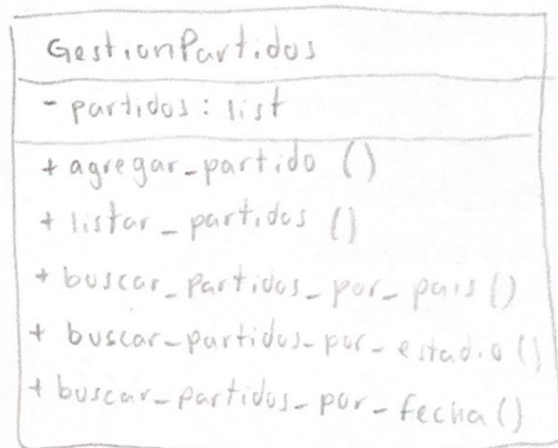 GestionPartidos
- partidos: list
+ agregar_partido ()
+ listar_partidos ()
+ buscar_partidos_por_pais ()
+ buscar_partidos_por_estadio ()
+ buscar_partidos_por_fecha ()